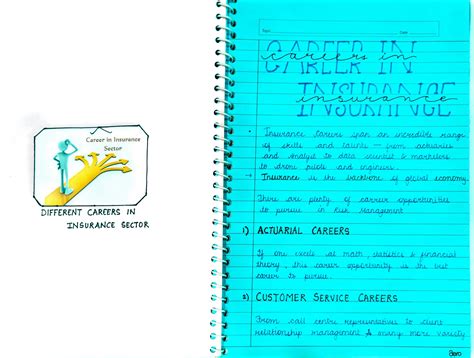 Career in Insurance
Sector
DIFFERENT CAREERS IN
INSURANCE SECTOR
CAREER IN
careers in
INSURANCE
insurance
Insurance Careers span an incredible range
of skills and talents — from actuaries
and analyst to data scientist & marketers
to drone pilots and engineers.
→ Insurance is the backbone of global economy.
There are plenty of career opportunities
to pursue in Risk Management
1) ACTUARIAL CAREERS
If one excels at math, statistics & financial
theory, this career opportunity is the best
career to pursue.
2) CUSTOMER SERVICE CAREERS
From call centre representatives to client
relationship management & many more variety